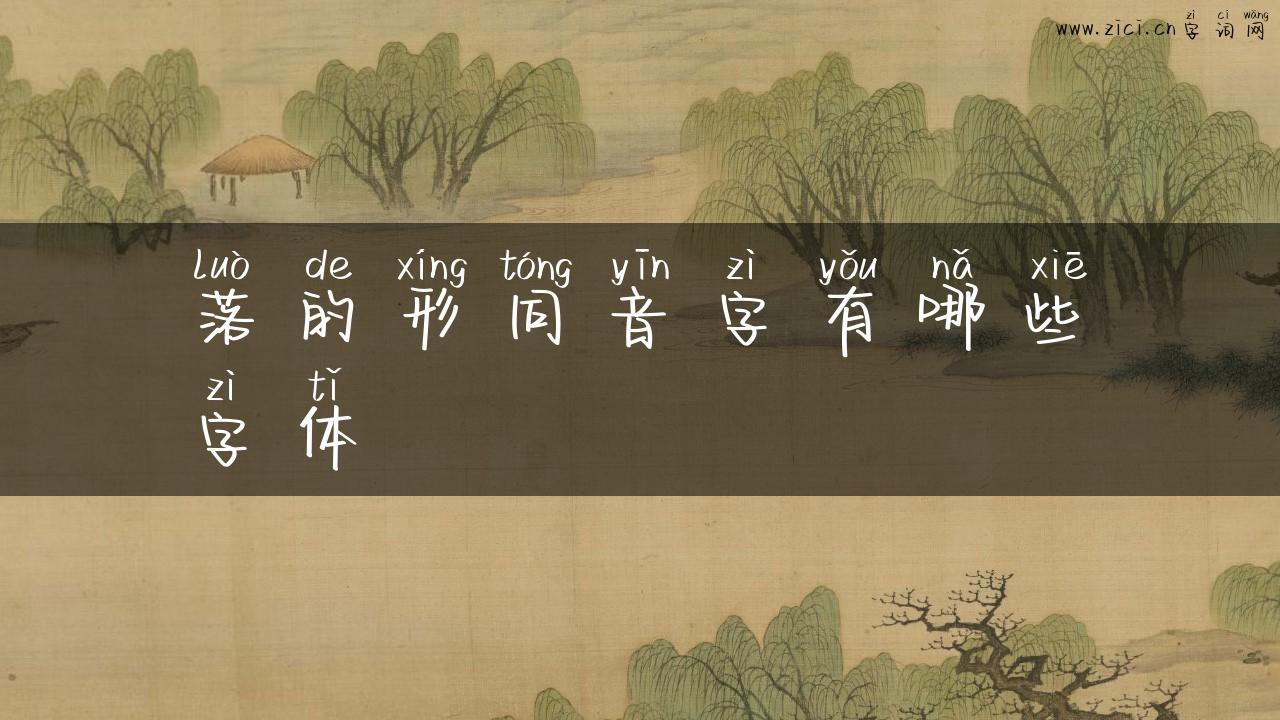 zì cí wǎng
www.zici.cn 字 词 网
luò de xíng tóng yīn zì yǒu nǎ xiē
落 的 形 同 音 字 有 哪 些
zì tǐ
字 体